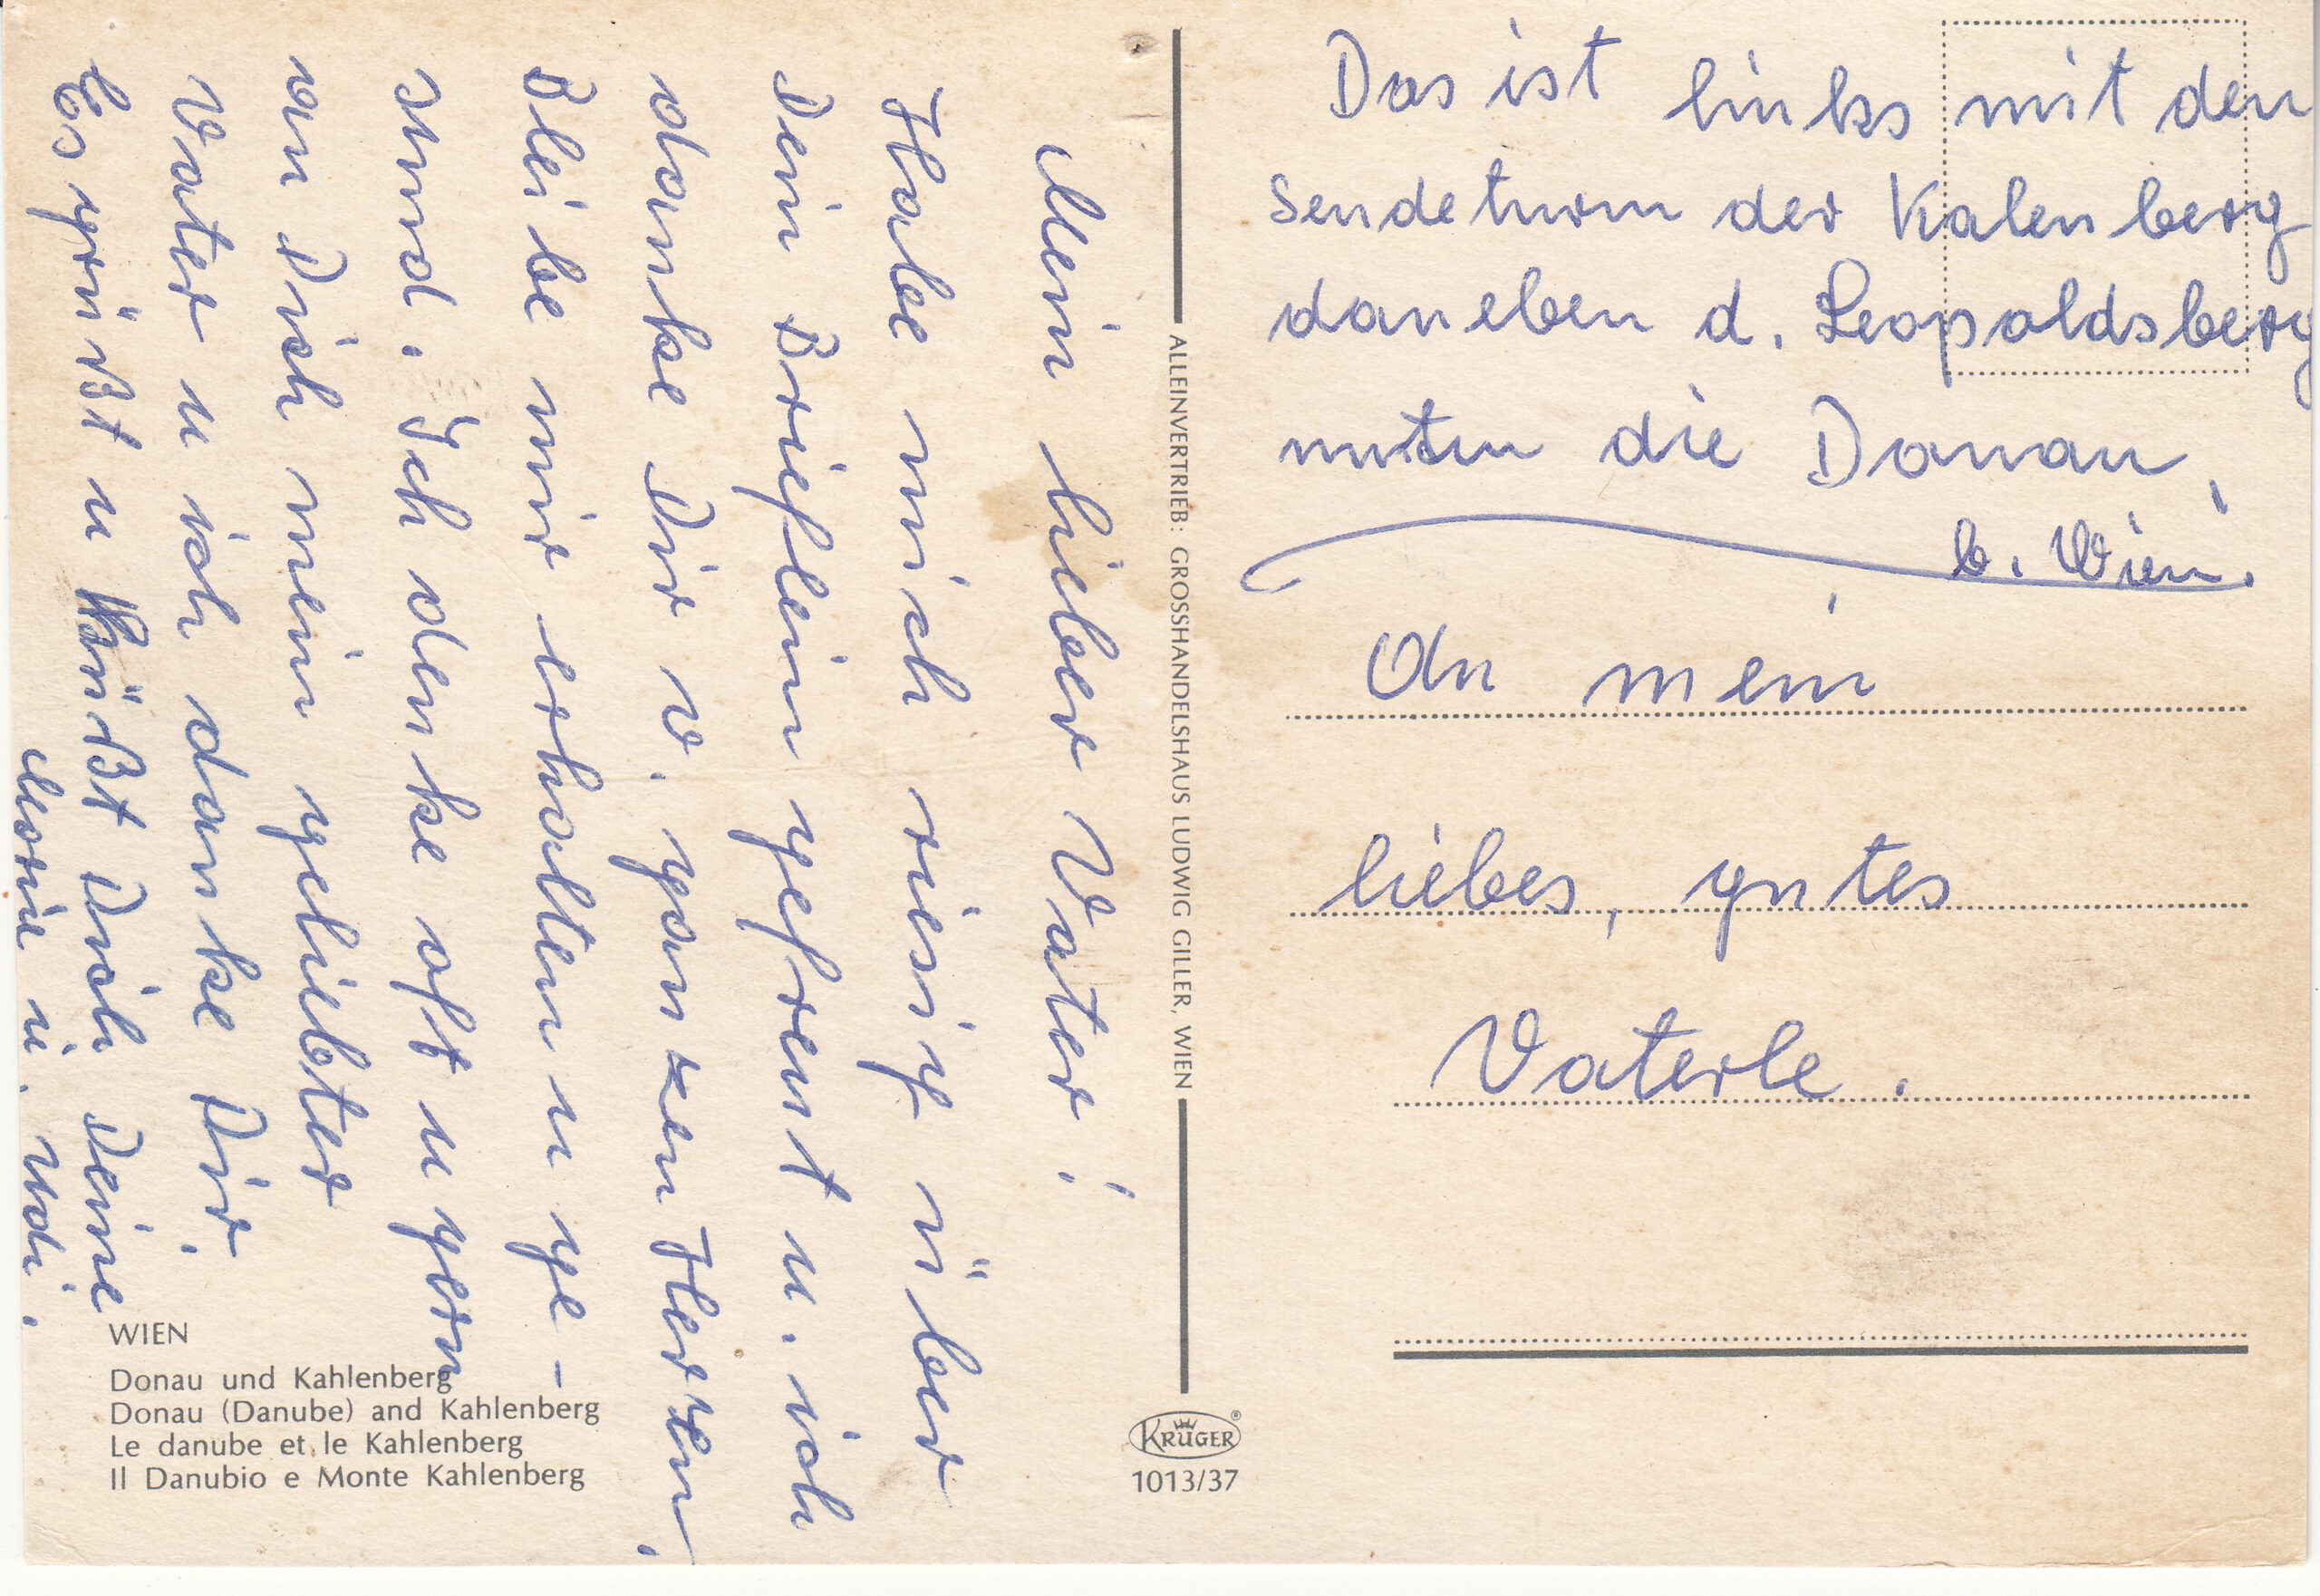 Mein lieber Vater!
Habe mich riesig über
Dein Brieflein gefreut u. ich
danke Dir v. ganzen Herzen.
Bleibe mir erhalten u ge-
sund. Ich denke oft u gern
an Dich mein geliebter
Vater u ich danke Dir.
Es grüßt u küßt Dich Deine
u.
WIEN
Donau und Kahlenberg
Donau (Danube) and Kahlenberg
Le danube et le Kahlenberg
Il Danubio e Monte Kahlenberg
ALLEINVERTRIEB: GROSSHANDELSHAUS LUDWIG GILLER, WIEN
KRÜGER®
1013/37
Das ist links mit den
Sendeturm der Kalenberg
daneben d. Leopoldsberg
unten die Donau,
b. Wien.
An mein
liebes, gutes
Vaterle.